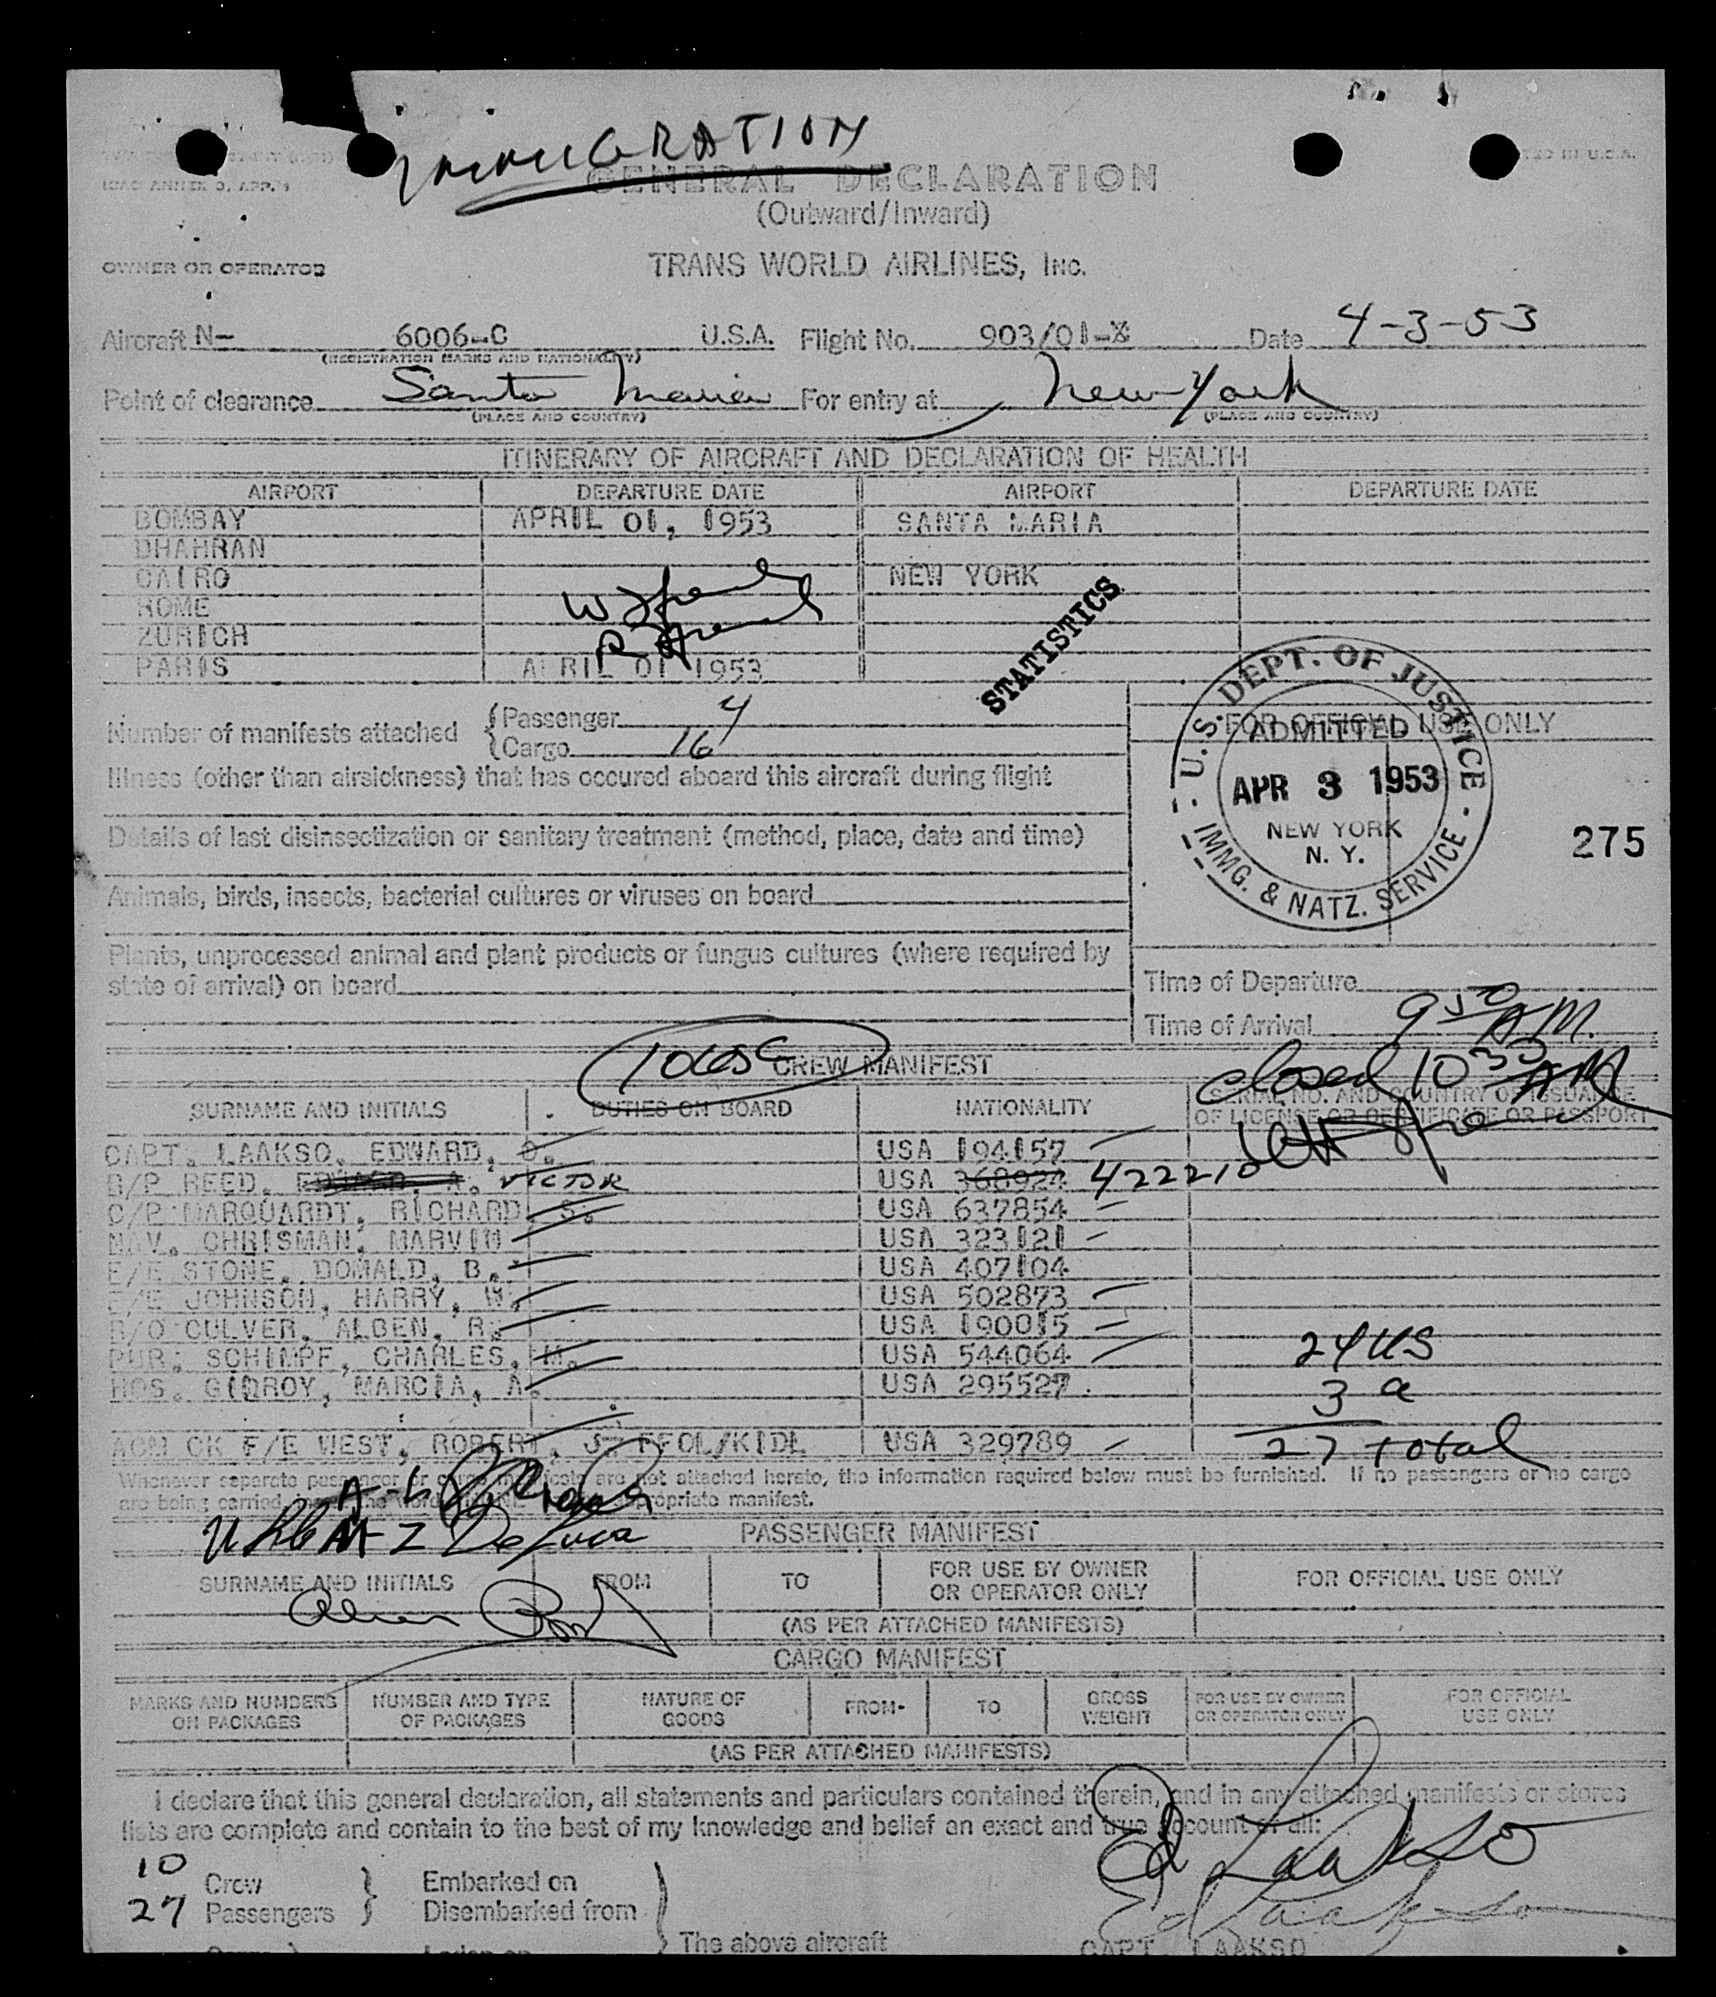 IMMIGRATION
ICAO ANNEX 9, APP. 1
GENERAL DECLARATION
(Outward/Inward)
OWNER OR OPERATOR TRANS WORLD AIRLINES, INC.
Aircraft N- 6006-C U.S.A. Flight No. 903/01-X Date 4-3-53
(REGISTRATION MARKS AND NATIONALITY)
Point of clearance Santa Maria For entry at New York
(PLACE AND COUNTRY) (PLACE AND COUNTRY)
ITINERARY OF AIRCRAFT AND DECLARATION OF HEALTH
AIRPORT DEPARTURE DATE AIRPORT DEPARTURE DATE
BOMBAY APRIL 01, 1953 SANTA MARIA
DHAHRAN
CAIRO NEW YORK
ROME
ZURICH
PARIS APRIL 01 1953
STATISTICS
Number of manifests attached { Passenger 4
Cargo 16
FOR OFFICIAL USE ONLY
U.S. DEPT. OF JUSTICE
ADMITTED
APR 3 1953
NEW YORK
N. Y.
IMMG. & NATZ. SERVICE
275
Illness (other than airsickness) that has occured aboard this aircraft during flight
Details of last disinsectization or sanitary treatment (method, place, date and time)
Animals, birds, insects, bacterial cultures or viruses on board
Plants, unprocessed animal and plant products or fungus cultures (where required by
state of arrival) on board
Time of Departure
Time of Arrival 9 50 AM.
closed 10 30 AM
CREW MANIFEST
SURNAME AND INITIALS DUTIES ON BOARD NATIONALITY SERIAL NO. AND COUNTRY OF ISSUANCE
OF LICENSE OR CERTIFICATE OR PASSPORT
CAPT. LAAKSO, EDWARD, O. USA 194157
R/P REED, EDWARD, A. VICTOR USA 368924 422210
C/P MARQUARDT, RICHARD, S. USA 637854
NAV. CHRISMAN, MARVIN USA 323121
F/E STONE, DONALD, B. USA 407104
F/E JOHNSON, HARRY, W. USA 502873
R/O CULVER, ALBEN, R. USA 190015
PUR. SCHIMPF, CHARLES, M. USA 544064 24 US
HOS. GILROY, MARCIA, A. USA 295527 3 a
ACM CK F/E WEST, ROBERT, J. FFOL/KIDL USA 329789 27 total
Whenever separate passenger or cargo manifests are not attached hereto, the information required below must be furnished. If no passengers or no cargo
are being carried, appropriate manifest.
PASSENGER MANIFEST
SURNAME AND INITIALS FROM TO FOR USE BY OWNER
OR OPERATOR ONLY FOR OFFICIAL USE ONLY
(AS PER ATTACHED MANIFESTS)
CARGO MANIFEST
MARKS AND NUMBERS
ON PACKAGES NUMBER AND TYPE
OF PACKAGES NATURE OF
GOODS FROM- TO GROSS
WEIGHT FOR USE BY OWNER
OR OPERATOR ONLY FOR OFFICIAL
USE ONLY
(AS PER ATTACHED MANIFESTS)
I declare that this general declaration, all statements and particulars contained therein, and in any attached manifests or stores
lists are complete and contain to the best of my knowledge and belief an exact and true account of all:
10 Crew } Embarked on
27 Passengers Disembarked from
The above aircraft
Ed Laakso
Ed Laakso
CAPT. LAAKSO